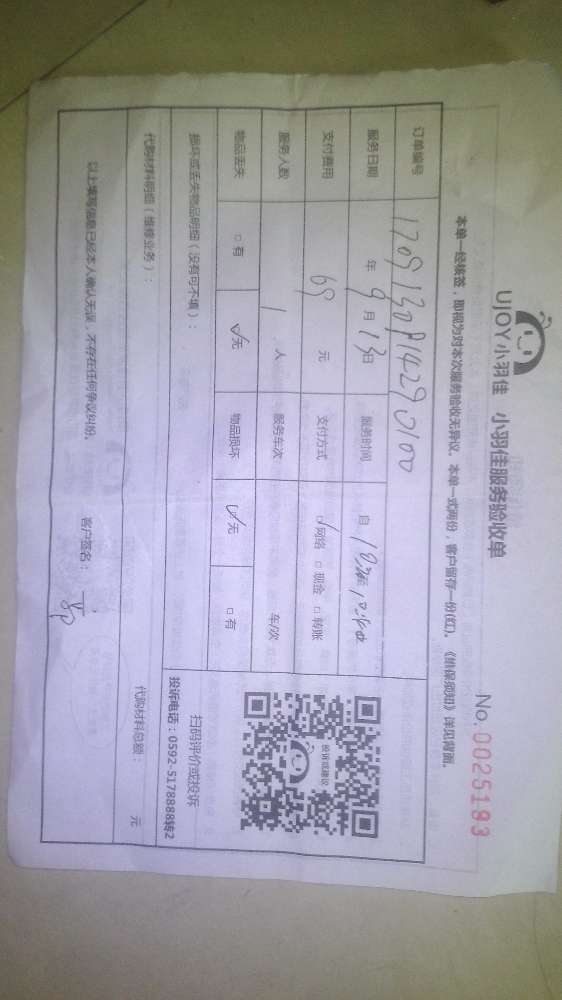 UJOY小羽佳 小羽佳服务验收单
No. 0025193
本单一经核签，即视为对本次服务验收无异议。本单一式两份，客户留存一份(红)。《维保须知》详见背面。
订单编号
服务日期 年 9 月 13 日 服务时间 自
支付费用 69 元 支付方式 ☑网络 □现金 □转账
服务人数 1 人 服务车次 车/次
物品丢失 □有 ☑无 物品损坏 ☑无 □有
损坏或丢失物品明细（没有可不填）：
投诉或建议
扫码评价或投诉
投诉电话：0592-5178888转2
代购材料明细（维修业务）：
代购材料总额： 元
以上填写信息已经本人确认无误，不存在任何争议纠纷。
客户签名：